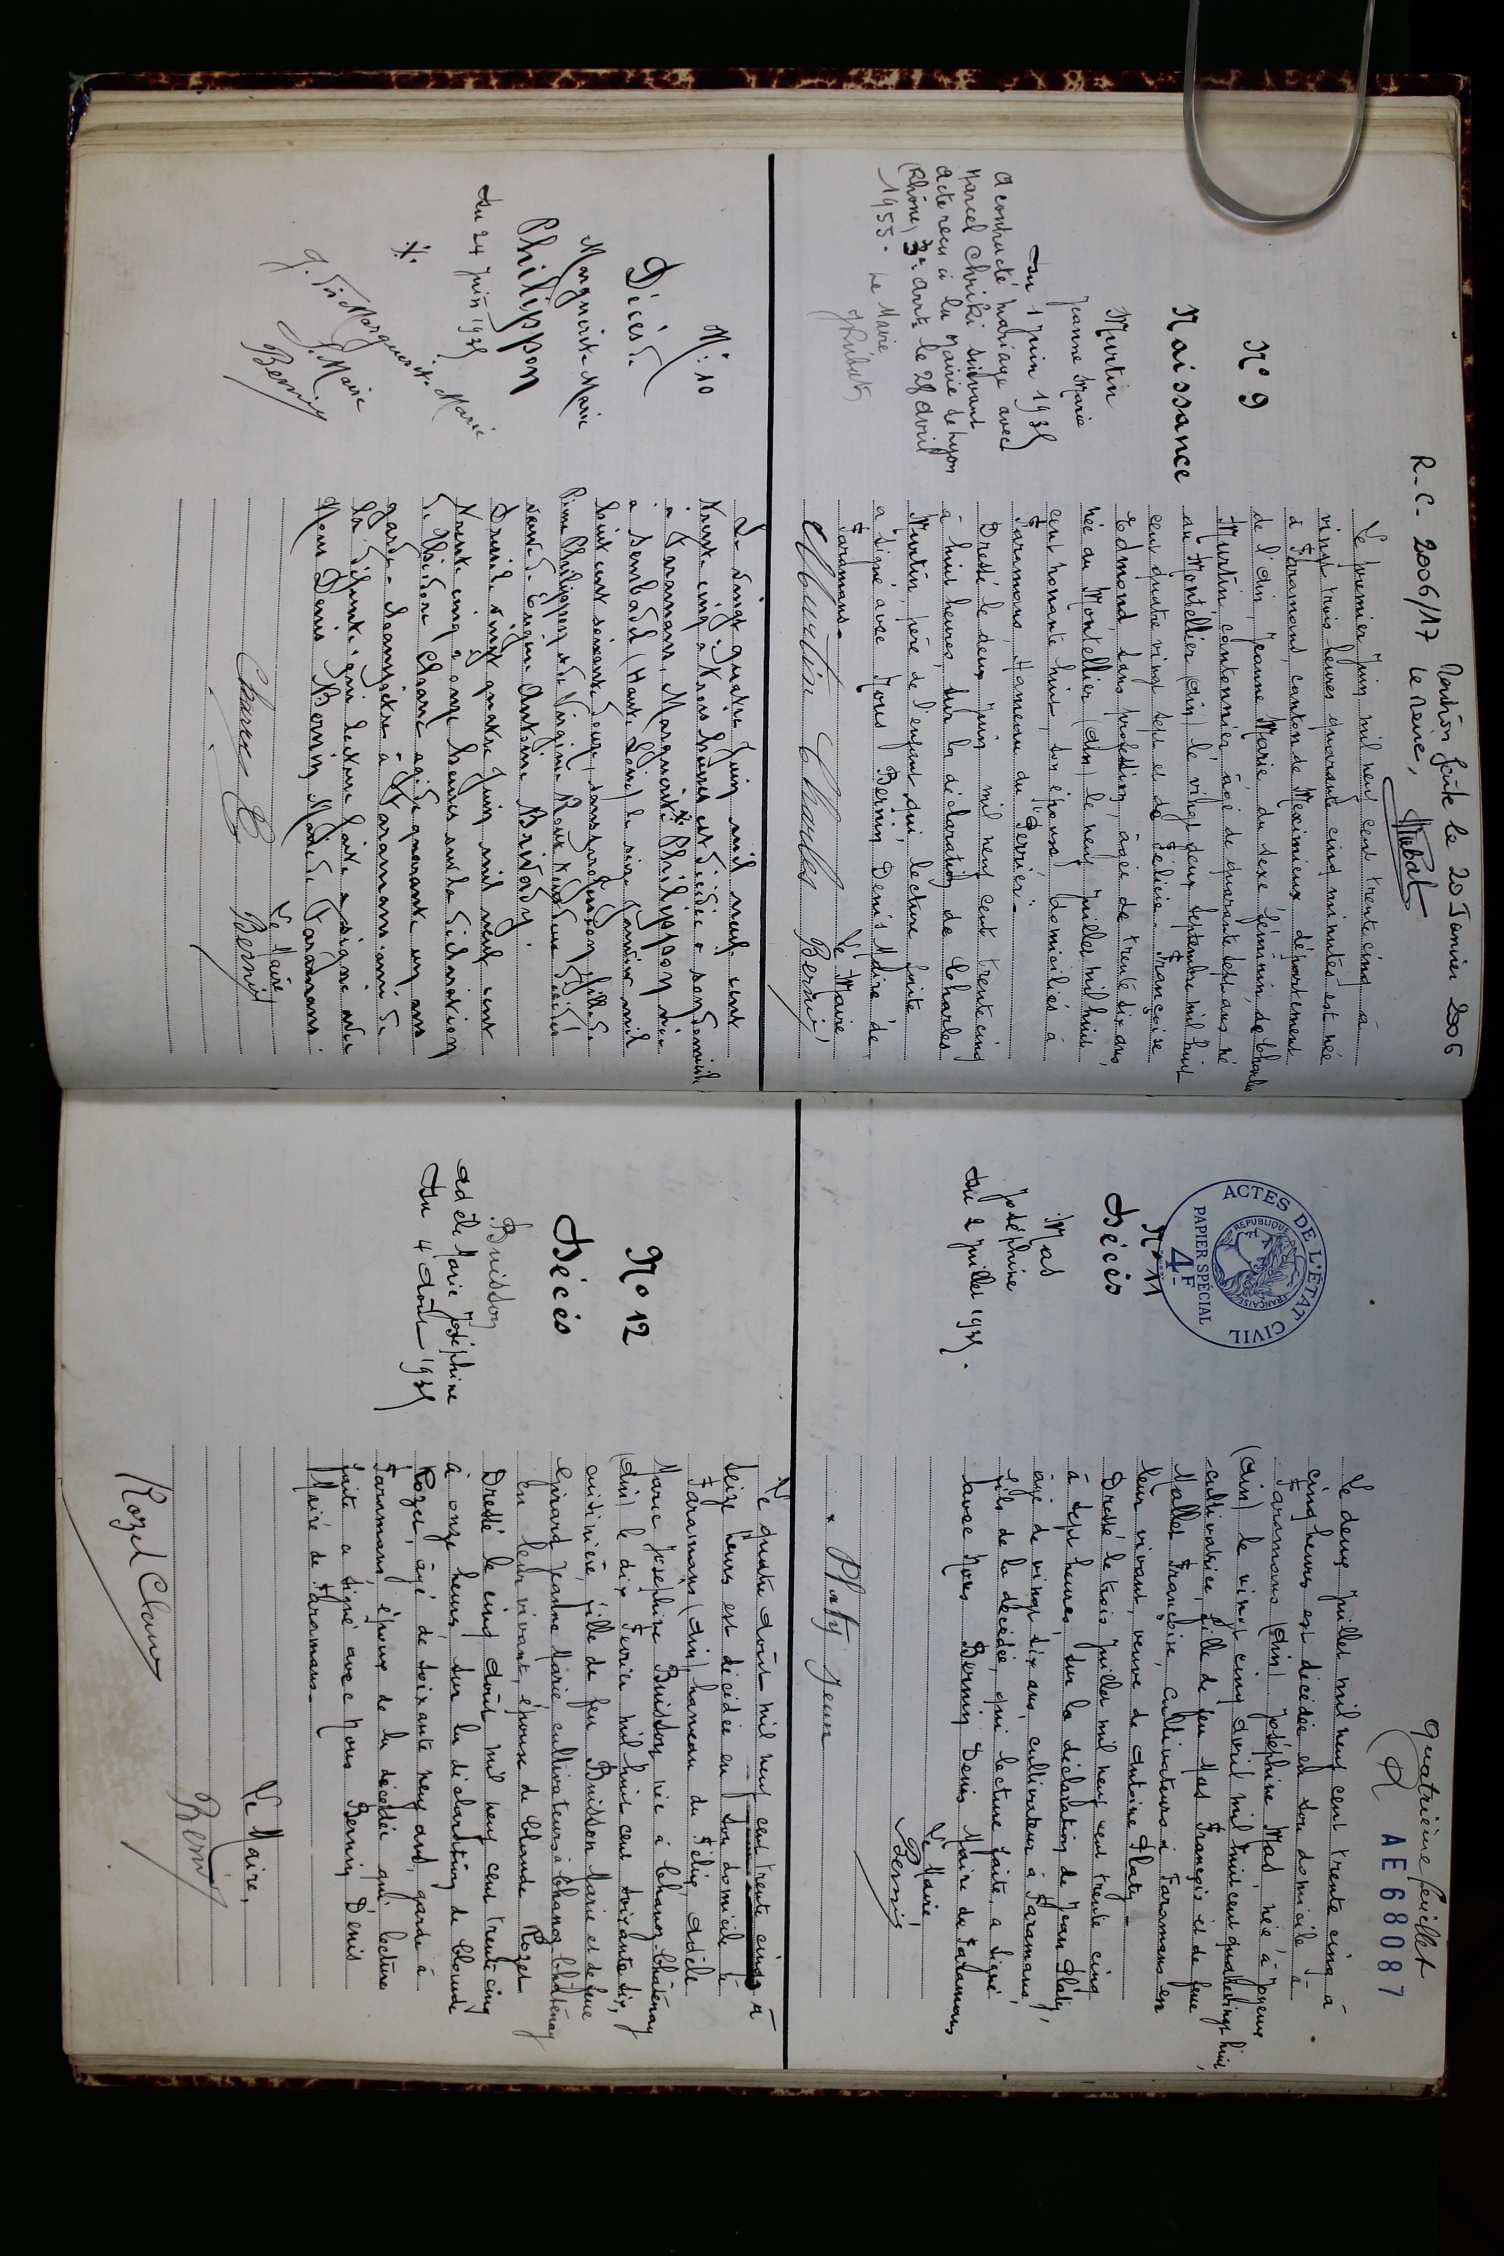 Mention faite le 20 Janvier 2006
R.C. 2006/17 Le Maire,
N° 9
Naissance
Martin
Jeanne Marie
du 1 Juin 1935
a contracté mariage avec
Marcel Chriki suivant
acte reçu à la Mairie de Lyon
(Rhône) 3e arrt. le 28 avril
1955. Le Maire
Le premier juin mil neuf cent trente cinq à
vingt trois heures quarante cinq minutes est née
à Faramans, canton de Meximieux département
de l'Ain, Jeanne Marie, du sexe féminin, de Charles
Martin, cantonnier, âgé de quarante sept ans né
au Montellier (Ain) le vingt deux septembre mil huit
cent quatre vingt sept et de Félicie Françoise
Edmond, sans profession, âgée de trente six ans,
née au Montellier (Ain) le neuf juillet mil huit
cent nonante huit, son épouse domiciliés à
Faramans, Hameau du Perrier.
Dressé le deux juin mil neuf cent trente cinq
à huit heures, sur la déclaration de Charles
Martin, père de l'enfant, qui, lecture faite
a signé avec Nous, Bernin Denis Maire de
Faramans.
Le Maire,
Martin Charles Bernin
N° 10
Décès de
Marguerite Marie
Philippon
du 24 Juin 1935
Marguerite Marie
Le Maire
Bernin
Le vingt quatre Juin mil neuf cent
trente cinq à trois heures est décédée à son domicile
à Faramans, Marguerite Philippon née
à Sembadel (Haute Loire) le six Janvier mil
huit cent soixante deux, sans profession, fille de
Pierre Philippon et de Virginie Roux tous deux décédés
veuve de Eugène Antoine Brivady.
Dressé le vingt quatre Juin mil neuf cent
trente cinq à onze heures sur la déclaration
de Isidore Charre âgé de quarante un ans
garde-champêtre à Faramans ami de
la défunte, qui lecture faite a signé avec
Nous Denis Bernin Maire de Faramans.
Le Maire
Charre Bernin
quatrième feuillet
AE68087
ACTES DE L'ÉTAT CIVIL
RÉPUBLIQUE FRANÇAISE
4F
PAPIER SPÉCIAL
N° 11
Décès
Mas
Joséphine
du 2 Juillet 1935.
Le deux Juillet mil neuf cent trente cinq à
cinq heures est décédée en son domicile à
Faramans (Ain) Joséphine Mas née à Joyeux
(Ain) le vingt cinq avril mil huit cent quatre vingt huit,
cultivatrice, fille de feu Mas François et de feue
Mallet Françoise, cultivateurs à Faramans en
leur vivant, veuve de Antoine Platy.
Dressé le trois juillet mil neuf cent trente cinq
à sept heures, sur la déclaration de Jean Platy,
âgé de vingt six ans, cultivateur à Faramans,
fils de la décédée, qui lecture faite, a signé
avec Nous Bernin Denis Maire de Faramans
Le Maire,
Bernin
Platy Jean
N° 12
Décès
Buisson
Adèle Marie Joséphine
du 4 Août 1935
Le quatre Août mil neuf cent trente cinq à
seize heures est décédée en son domicile à
Faramans (Ain) hameau du Féliy, Adèle
Marie Joséphine Buisson née à Chanoz-Châtenay
(Ain) le dix Février mil huit cent soixante six,
cuisinière, fille de feu Buisson Marie et de feue
Girard Jeanne Marie, cultivateurs à Chanoz-Châtenay
en leur vivant, épouse de Claude Rozet
Dressé le cinq Août mil neuf cent trente cinq
à onze heures sur la déclaration de Claude
Rozet, âgé de soixante neuf ans, garde à
Faramans, époux de la décédée qui lecture
faite a signé avec Nous Bernin Denis
Maire de Faramans.
Le Maire,
Bernin
Rozet Claude